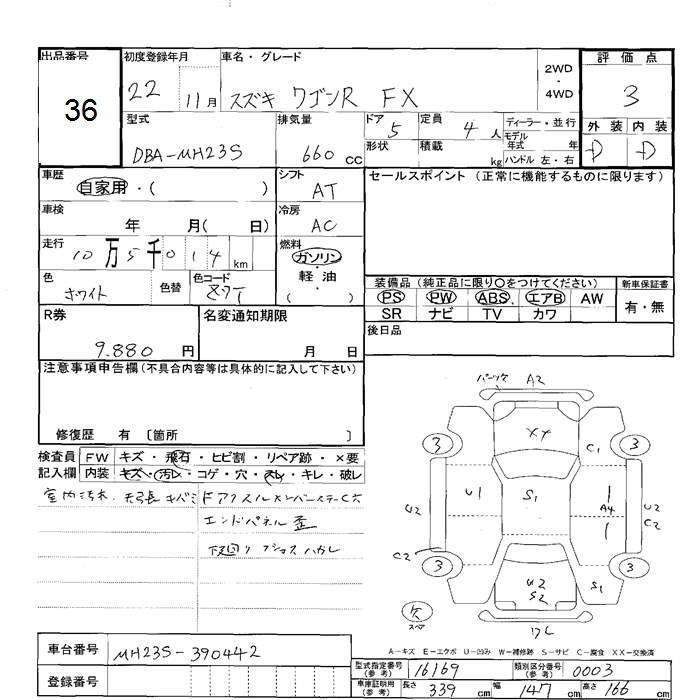 出品番号 初度登録年月 車名・グレード 2WD・4WD 評価点
36 22 11月 スズキ ワゴンR FX 3
型式 排気量 ドア 5 定員 4人 ディーラー・並行 外装 内装
DBA-MH23S 660cc 形状 積載 kg モデル年式 年 D D
ハンドル 左・右
車歴 自家用・( ) シフト AT セールスポイント(正常に機能するものに限ります)
車検 年 月( 日) 冷房 AC
走行 10万5千014km 燃料 ガソリン・軽油( )
色 ホワイト 色替 色コード 装備品(純正品に限り○をつけてください) 新車保証書
PS PW ABS エアB AW 有・無
SR ナビ TV カワ
R券 9.880円 名変通知期限 月 日 後日品
注意事項申告欄(不具合内容等は具体的に記入して下さい)
A2
修復歴 有 〔箇所 〕
検査員 FW キズ・飛石・ヒビ割・リペア跡・×要
記入欄 内装 キズ・汚レ・コゲ・穴・スレ・キレ・破レ
3 C1 3
U1 S1 A4
U2 U2 C2
エンドパネル歪
C2
3 3
U2 S2 S1
A-キズ E-エクボ U-凹み W-補修跡 S-サビ C-腐食 XX-交換済
車台番号 MH23S-390442
登録番号
型式指定番号(参考) 16169 類別区分番号(参考) 0003
車庫証明用(参考) 長さ 339cm 幅 147cm 高さ 166cm